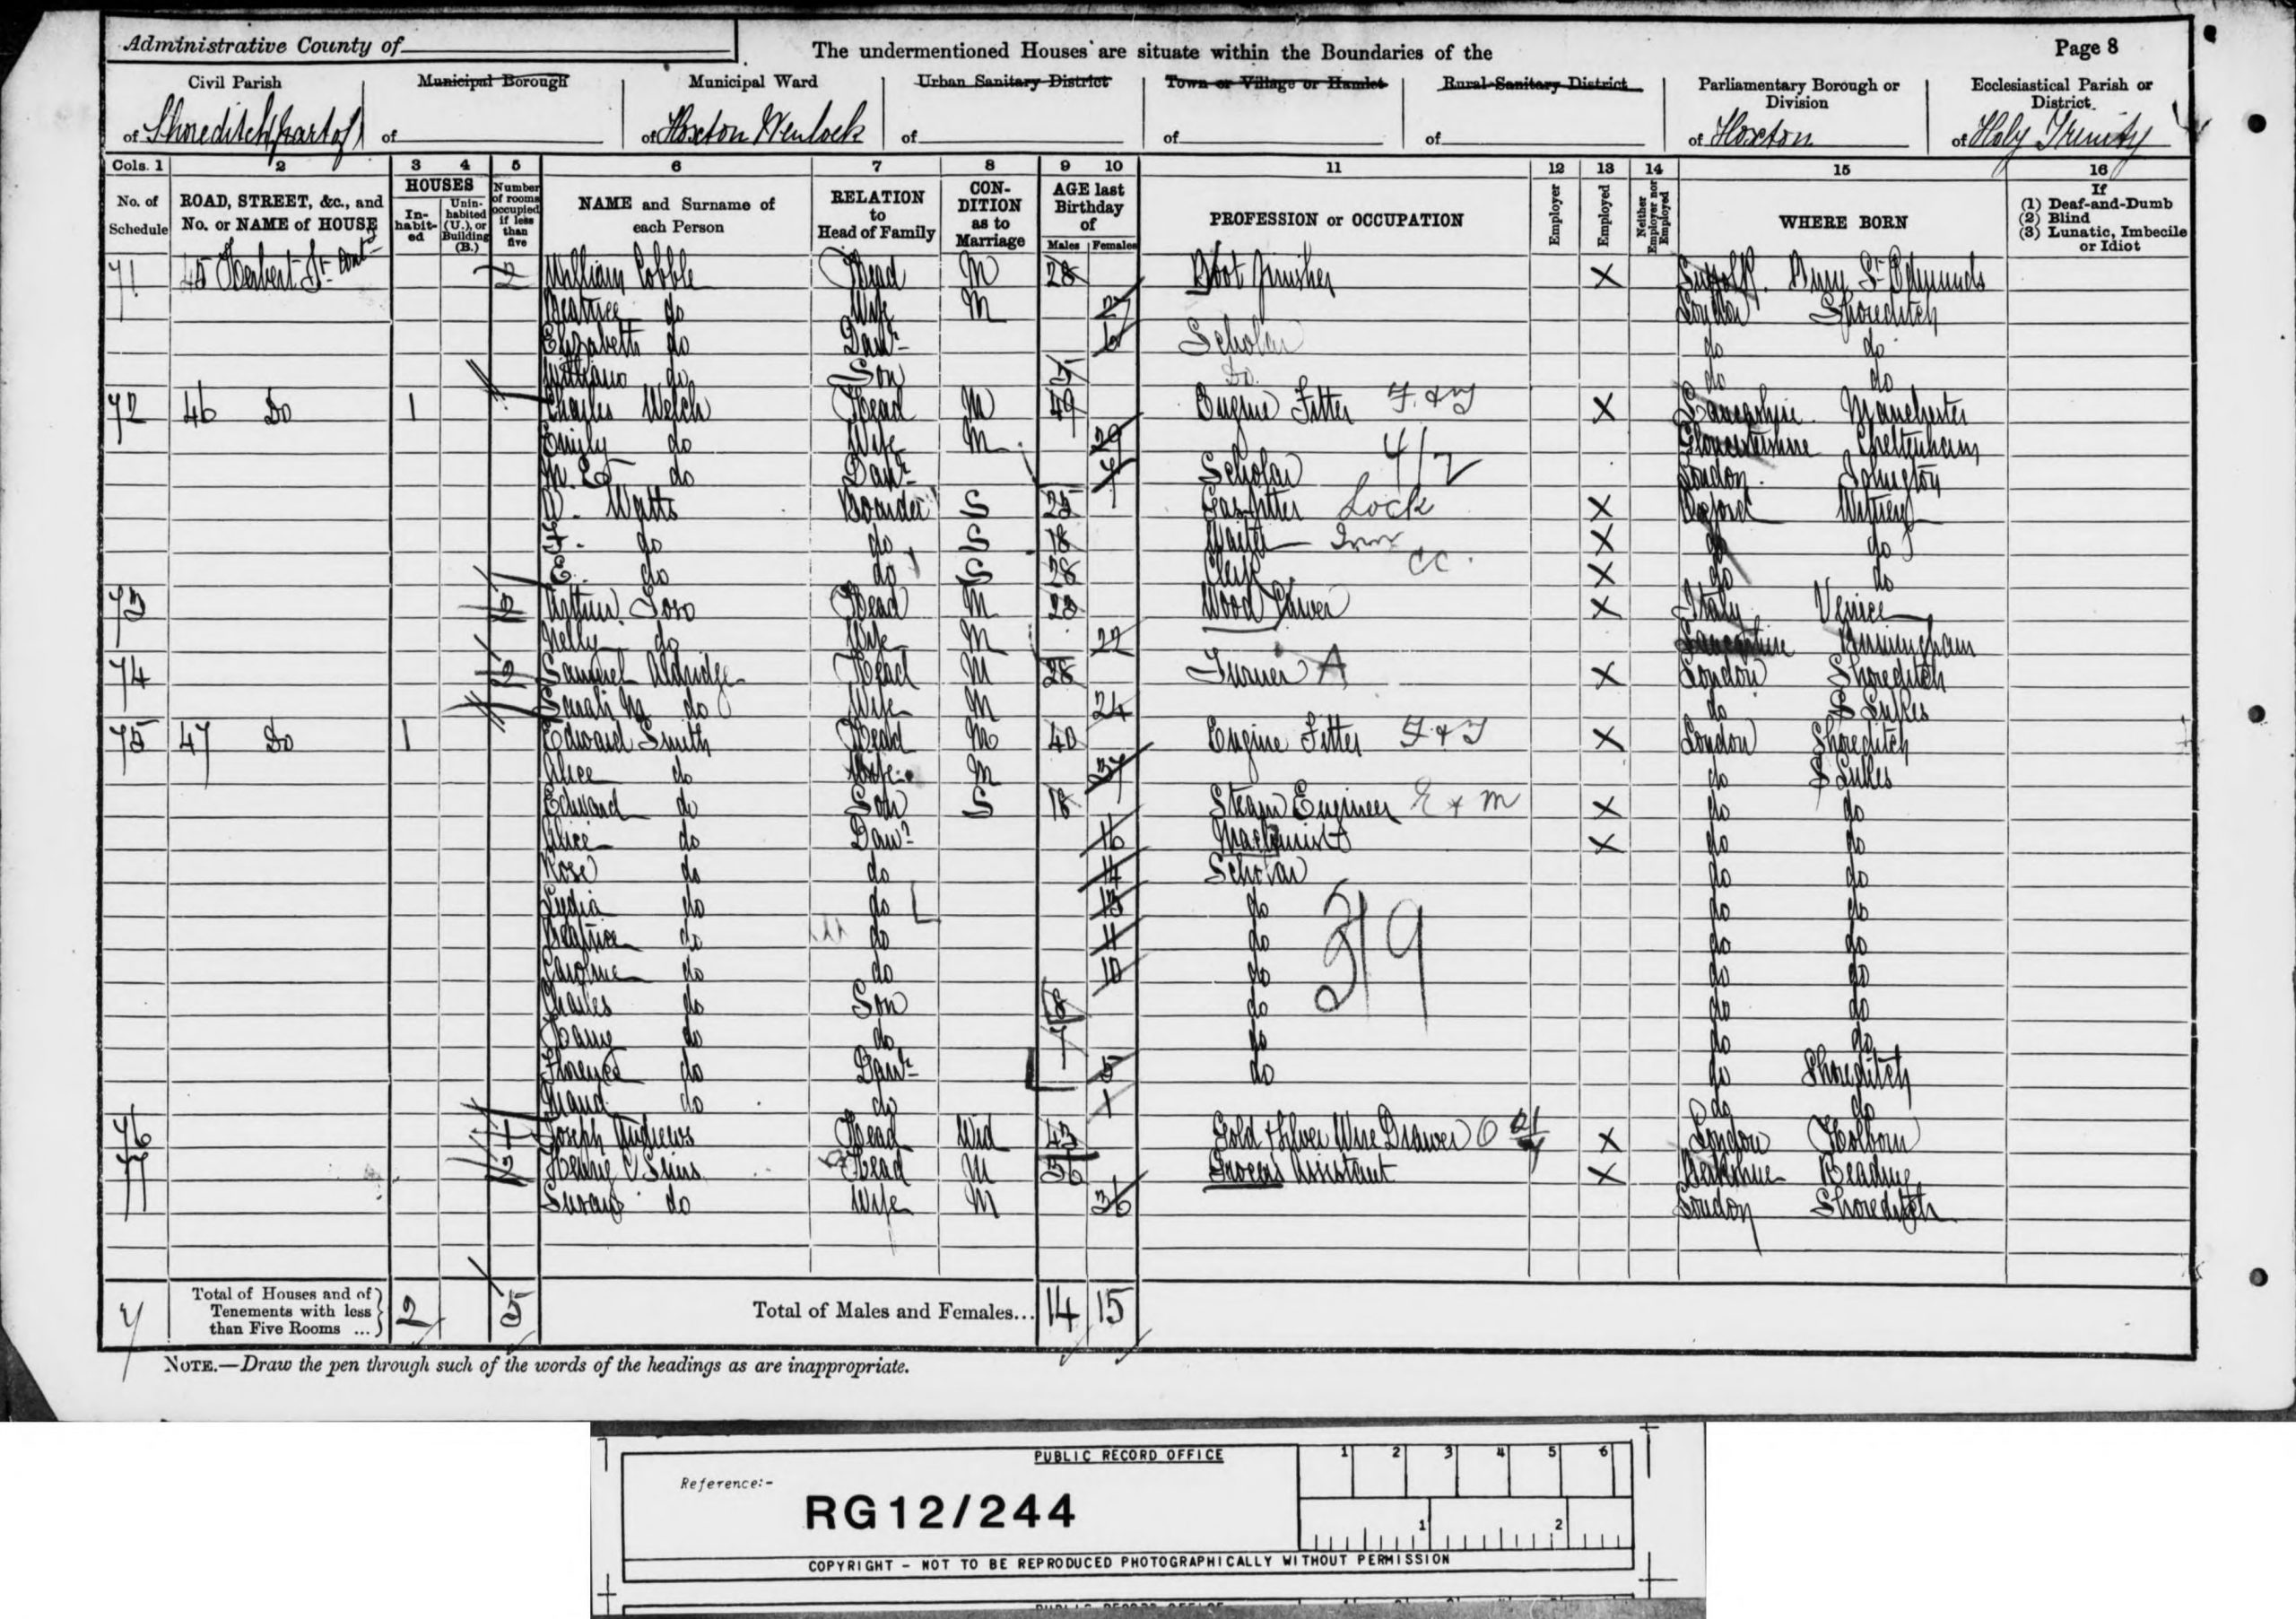 Administrative County of
The undermentioned Houses are situate within the Boundaries of the
Page 8
Civil Parish
Municipal Borough
Municipal Ward
Urban Sanitary District
Town or Village or Hamlet
Rural Sanitary District
Parliamentary Borough or Division
Ecclesiastical Parish or District
of Shoreditch (part of)
of
of Hoxton Wenlock
of
of
of
of Hoxton
of Holy Trinity
Cols. 1 2 3 4 5 6 7 8 9 10 11 12 13 14 15 16
No. of Schedule
ROAD, STREET, &c., and No. or NAME of HOUSE
HOUSES
In-habit-ed
Unin-habited (U.), or Building (B.)
Number of rooms occupied if less than five
NAME and Surname of each Person
RELATION to Head of Family
CON-DITION as to Marriage
AGE last Birthday of
Males Females
PROFESSION or OCCUPATION
Employer
Employed
Neither Employer nor Employed
WHERE BORN
If
(1) Deaf-and-Dumb
(2) Blind
(3) Lunatic, Imbecile or Idiot
71 45 Herbert St. contd 2 William Cobble Head M 28 Boot finisher X Suffolk. Bury St Edmunds
Beatrice do Wife M 27 London Shoreditch
Elizabeth do Daur 6 Scholar do do
William do Son 5 Do do do
72 46 Do 1 Charles Welch Head M 49 Engine Fitter F & T X Lancashire Manchester
Emily do Wife M 29 Gloucestershire Cheltenham
M. E. do Daur 7 Scholar 4/2 London Islington
W. Watts Boarder S 25 Gasfitter Lock X Oxford Witney
F. do do S 18 Waiter Inn X do do
E. do do S 28 Clerk CC. X do do
73 2 Arthur Head M 23 Wood X Italy Venice
Nelly do Wife M 22 Birmingham
74 2 Samuel Aldridge Head M 28 Turner A X London Shoreditch
Sarah M do Wife M 24 do St Lukes
75 47 Do 1 Edward Smith Head M 40 Engine Fitter F & T X London Shoreditch
Alice do Wife M 37 do St Lukes
Edward do Son S 18 Steam Engineer E & M X do do
Alice do Daur 16 Machinist X do do
Rose do do 14 Scholar do do
Lydia do do 13 do do do
Beatrice do do 11 do do do
Caroline do do 10 do do do
Charles do Son 8 do do do
Harry do do 7 do do do
Florence do Daur 5 do do Shoreditch
Maud do do 1 do do
319
76 1 Joseph Andrews Head Wid 43 Gold & Silver Wire Drawer O X London Holborn
77 2 Henry C Sims Head M 56 Grocers Assistant X Berkshire Reading
Susan do Wife M 36 London Shoreditch
Total of Houses and of Tenements with less than Five Rooms ...
2 5
Total of Males and Females... 14 15
NOTE.—Draw the pen through such of the words of the headings as are inappropriate.
PUBLIC RECORD OFFICE
1 2 3 4 5 6
Reference:-
RG12/244
1 2
COPYRIGHT - NOT TO BE REPRODUCED PHOTOGRAPHICALLY WITHOUT PERMISSION
PUBLIC RECORD OFFICE